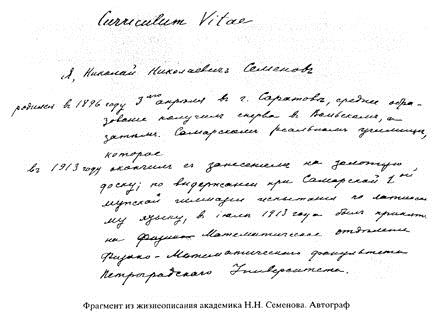 Curriculum Vitae
Я, Николай Николаевич Семеновъ
родился в 1896 году 3го апреля в г. Саратовъ, среднее обра-
зование получилъ сперва в Вольскомъ, а
затемъ Самарскомъ реальномъ училище,
которое
въ 1913 году окончилъ съ занесениемъ на золотую
доску; по выдержании при Самарской 2ой
мужской гимназии испытания по латинско
му языку, в июле 1913 года былъ принятъ
на Физико Математическое отделение
Физико-Математического факультета
Петроградского Университета.
Фрагмент из жизнеописания академика Н.Н. Семенова. Автограф